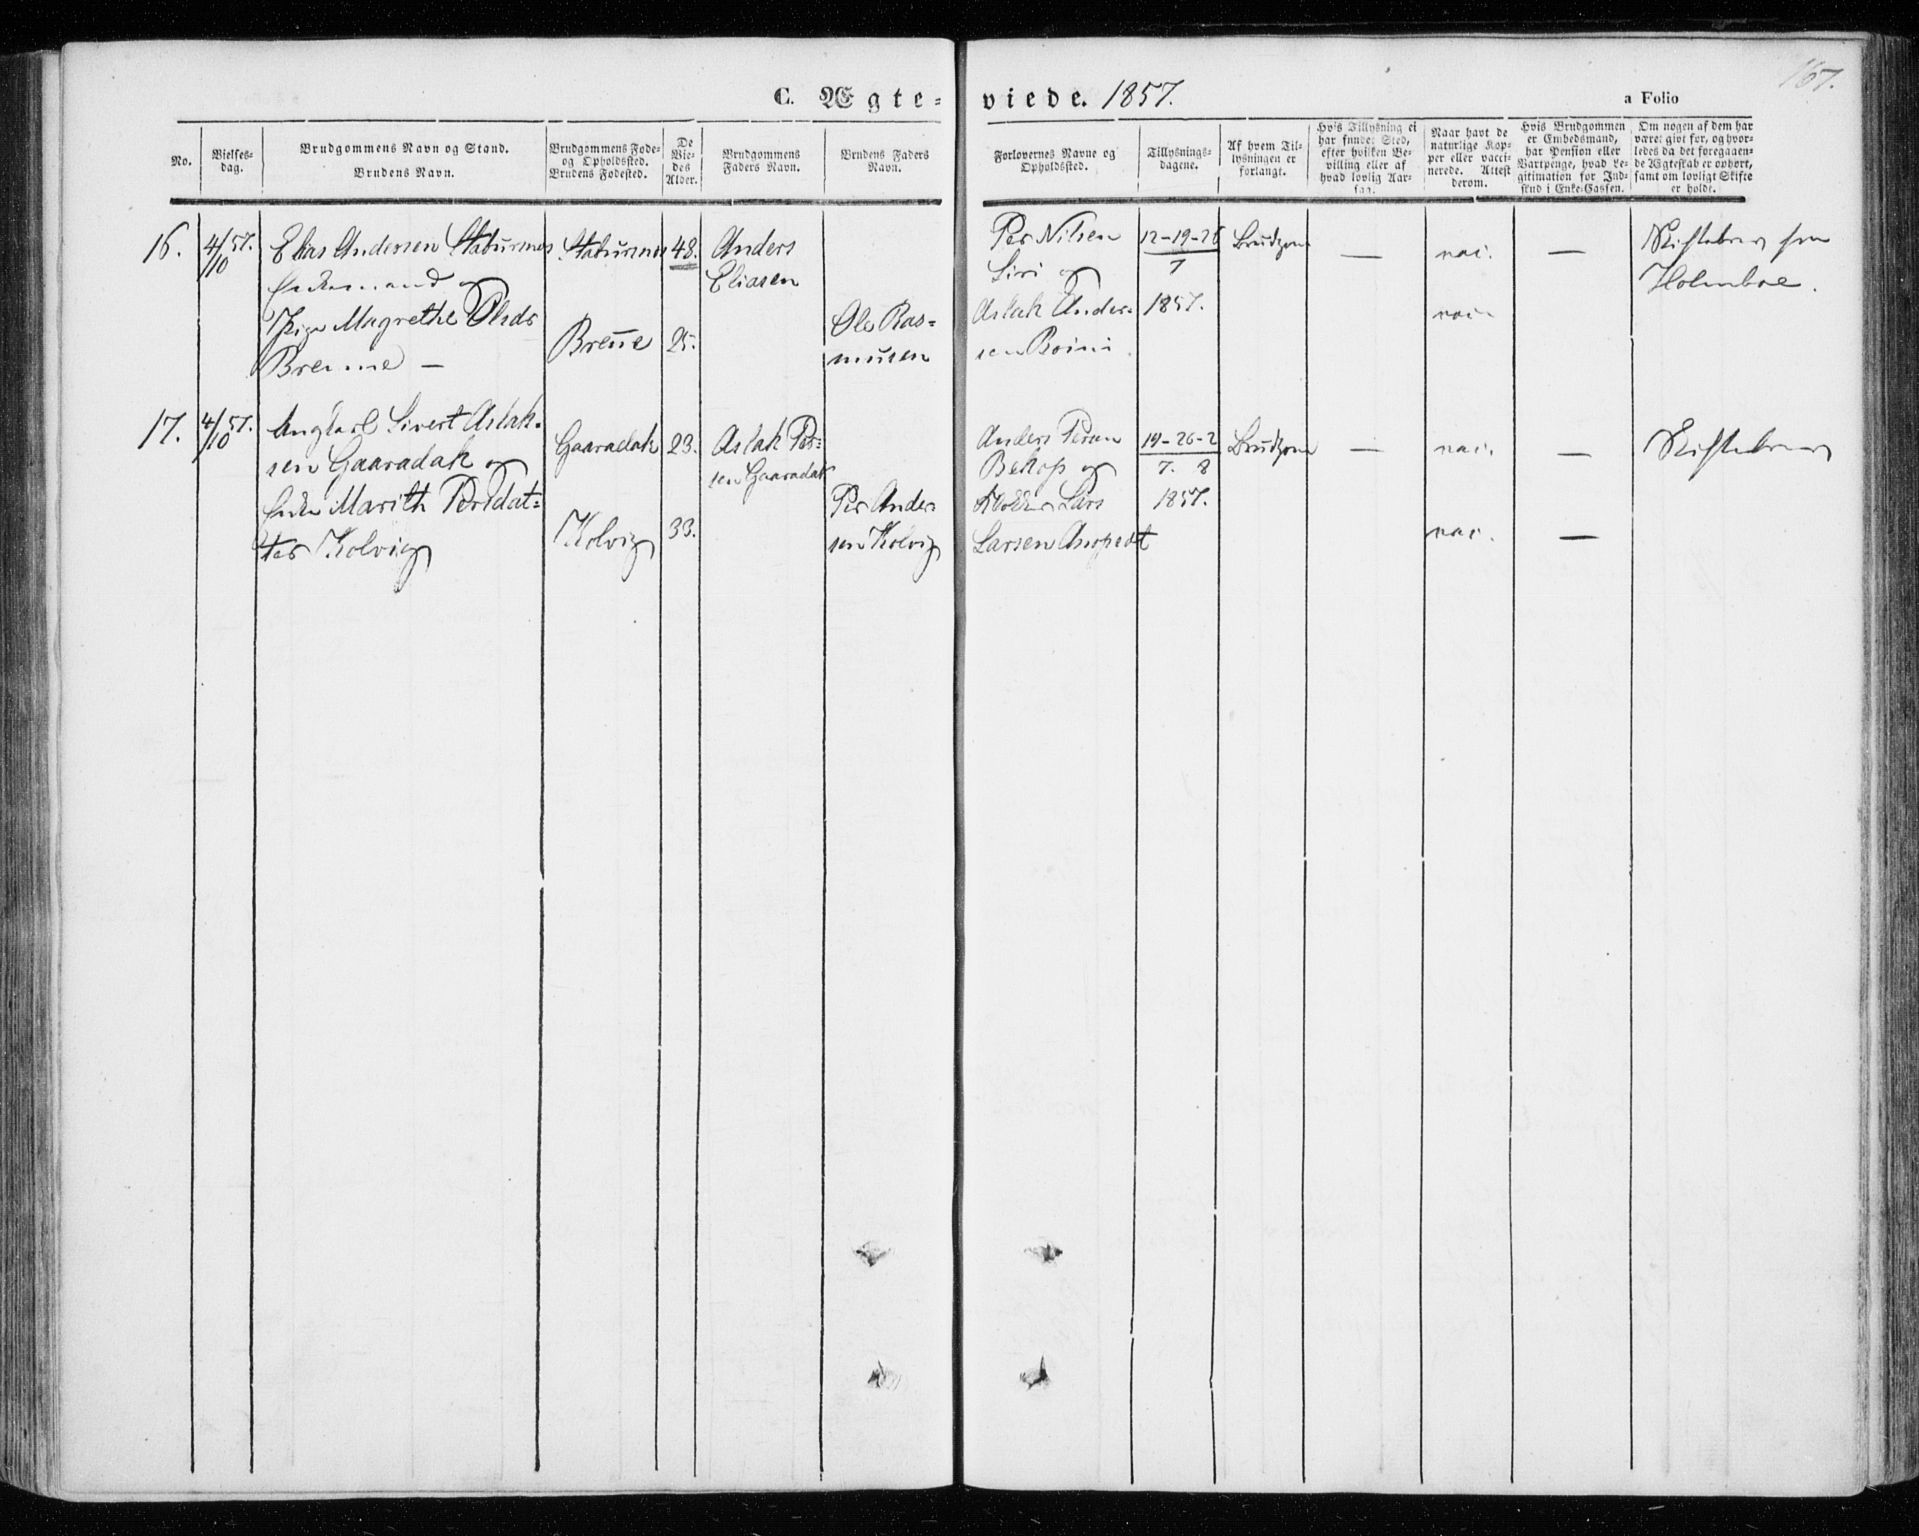 C. Ægte-viede. 1857.
a Folio
167.
No.
Vielses-
dag.
Brudgommens Navn og Stand.
Brudens Navn.
Brudgommens Føde-
og Opholdssted.
Brudens Fødested.
De
Vie-
des
Alder.
Brudgommens
Faders Navn.
Brudens Faders
Navn.
Forlovernes Navne og
Opholdssted.
Tillysnings-
dagene.
Af hvem Til-
lysningen er
forlangt.
Hvis Tillysning ei
har fundet Sted,
efter hvilken Be-
villing eller af
hvad lovlig Aar-
sag.
Naar havt de
naturlige Kop-
per eller vacci-
nerede. Attest
derom.
Hvis Brudgommen
er Embedsmand,
har Pension eller
Vartpenge, hvad Le-
gitimation for Ind-
skud i Enke-Cassen.
Om nogen af dem har
været givt før, og hvor-
ledes da det foregaaen-
de Ægteskab er ophørt,
samt om lovligt Skifte
er holdt.
16.
4/10 57.
Elias Andersen Stabursnes
Enkemand og
Pige Magrethe Olsdr
Brenne —
Stabursnes
Brenne
48.
25.
Anders
Eliasen
Ole Ras-
musen
Per Nilsen
Siri og
Aslak Ander-
sen
12-19-26
7
1857.
Brudgom
—
vac.
vac.
—
Skiftebrev fra
Holmboe.
17.
4/10 57.
Ungkarl Sivert Aslak-
sen Gaaradak og
Enke Marith Persdat-
ter Kolvig
Gaaradak
Kolvig
23.
33.
Aslak Per-
sen Gaaradak
Per Ander
sen Kolvig
Anders Persen
Bekop og
Lars
Larsen
19-26-2
7. 8
1857.
Brudgom
—
vac.
vac.
—
—
Skiftebrev